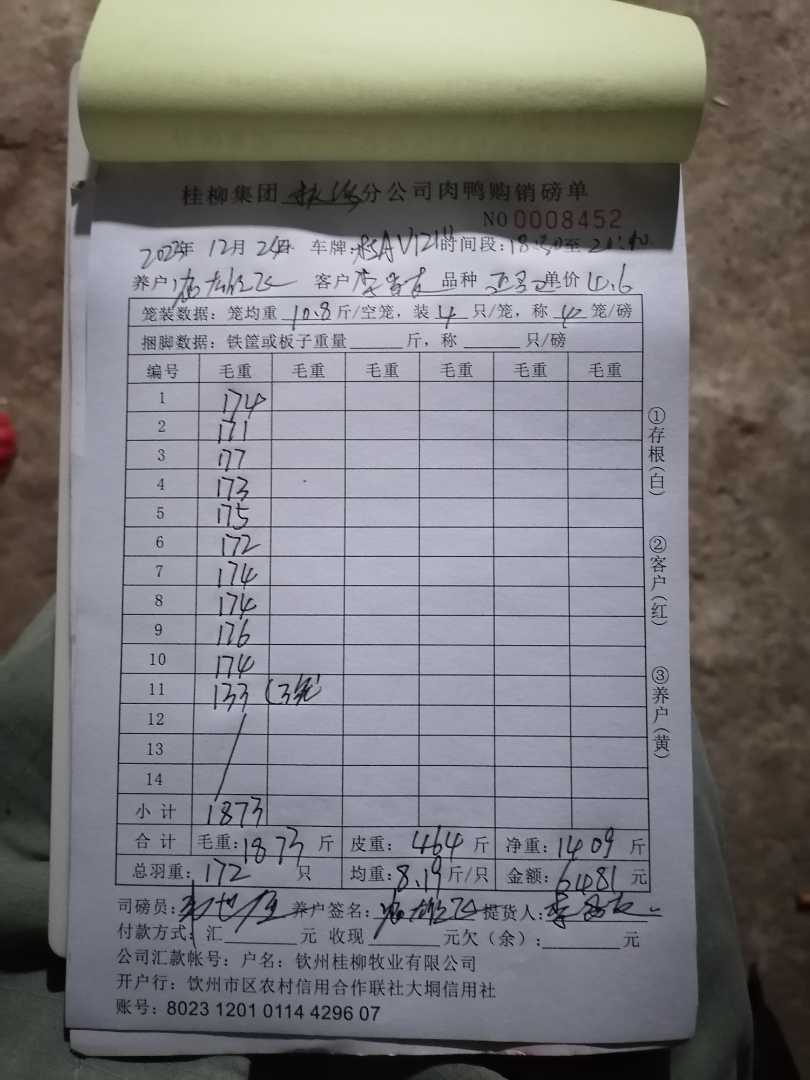 桂柳集团 分公司肉鸭购销磅单
NO 0008452
2023年 12月 24日 车牌: AV121 时间段:18:30至21:40
养户: 客户 李 品种 单价 4.6
笼装数据: 笼均重 10.8 斤/空笼, 装 4 只/笼, 称 4 笼/磅
捆脚数据: 铁筐或板子重量 斤, 称 只/磅
编号 毛重 毛重 毛重 毛重 毛重 毛重
1 174
2 171
3 177
4 173
5 175
6 172
7 174
8 174
9 176
10 174
11 133 (3笼)
12
13
14
小计 1873
合计 毛重:1873 斤 皮重: 464 斤 净重:1409 斤
总羽重:172 只 均重:8.19斤/只 金额:6481 元
司磅员: 养户签名: 提货人:
付款方式: 汇 元 收现 元欠(余): 元
公司汇款帐号: 户名: 钦州桂柳牧业有限公司
开户行: 钦州市区农村信用合作联社大垌信用社
账号: 8023 1201 0114 4296 07
①存根(白)
②客户(红)
③养户(黄)